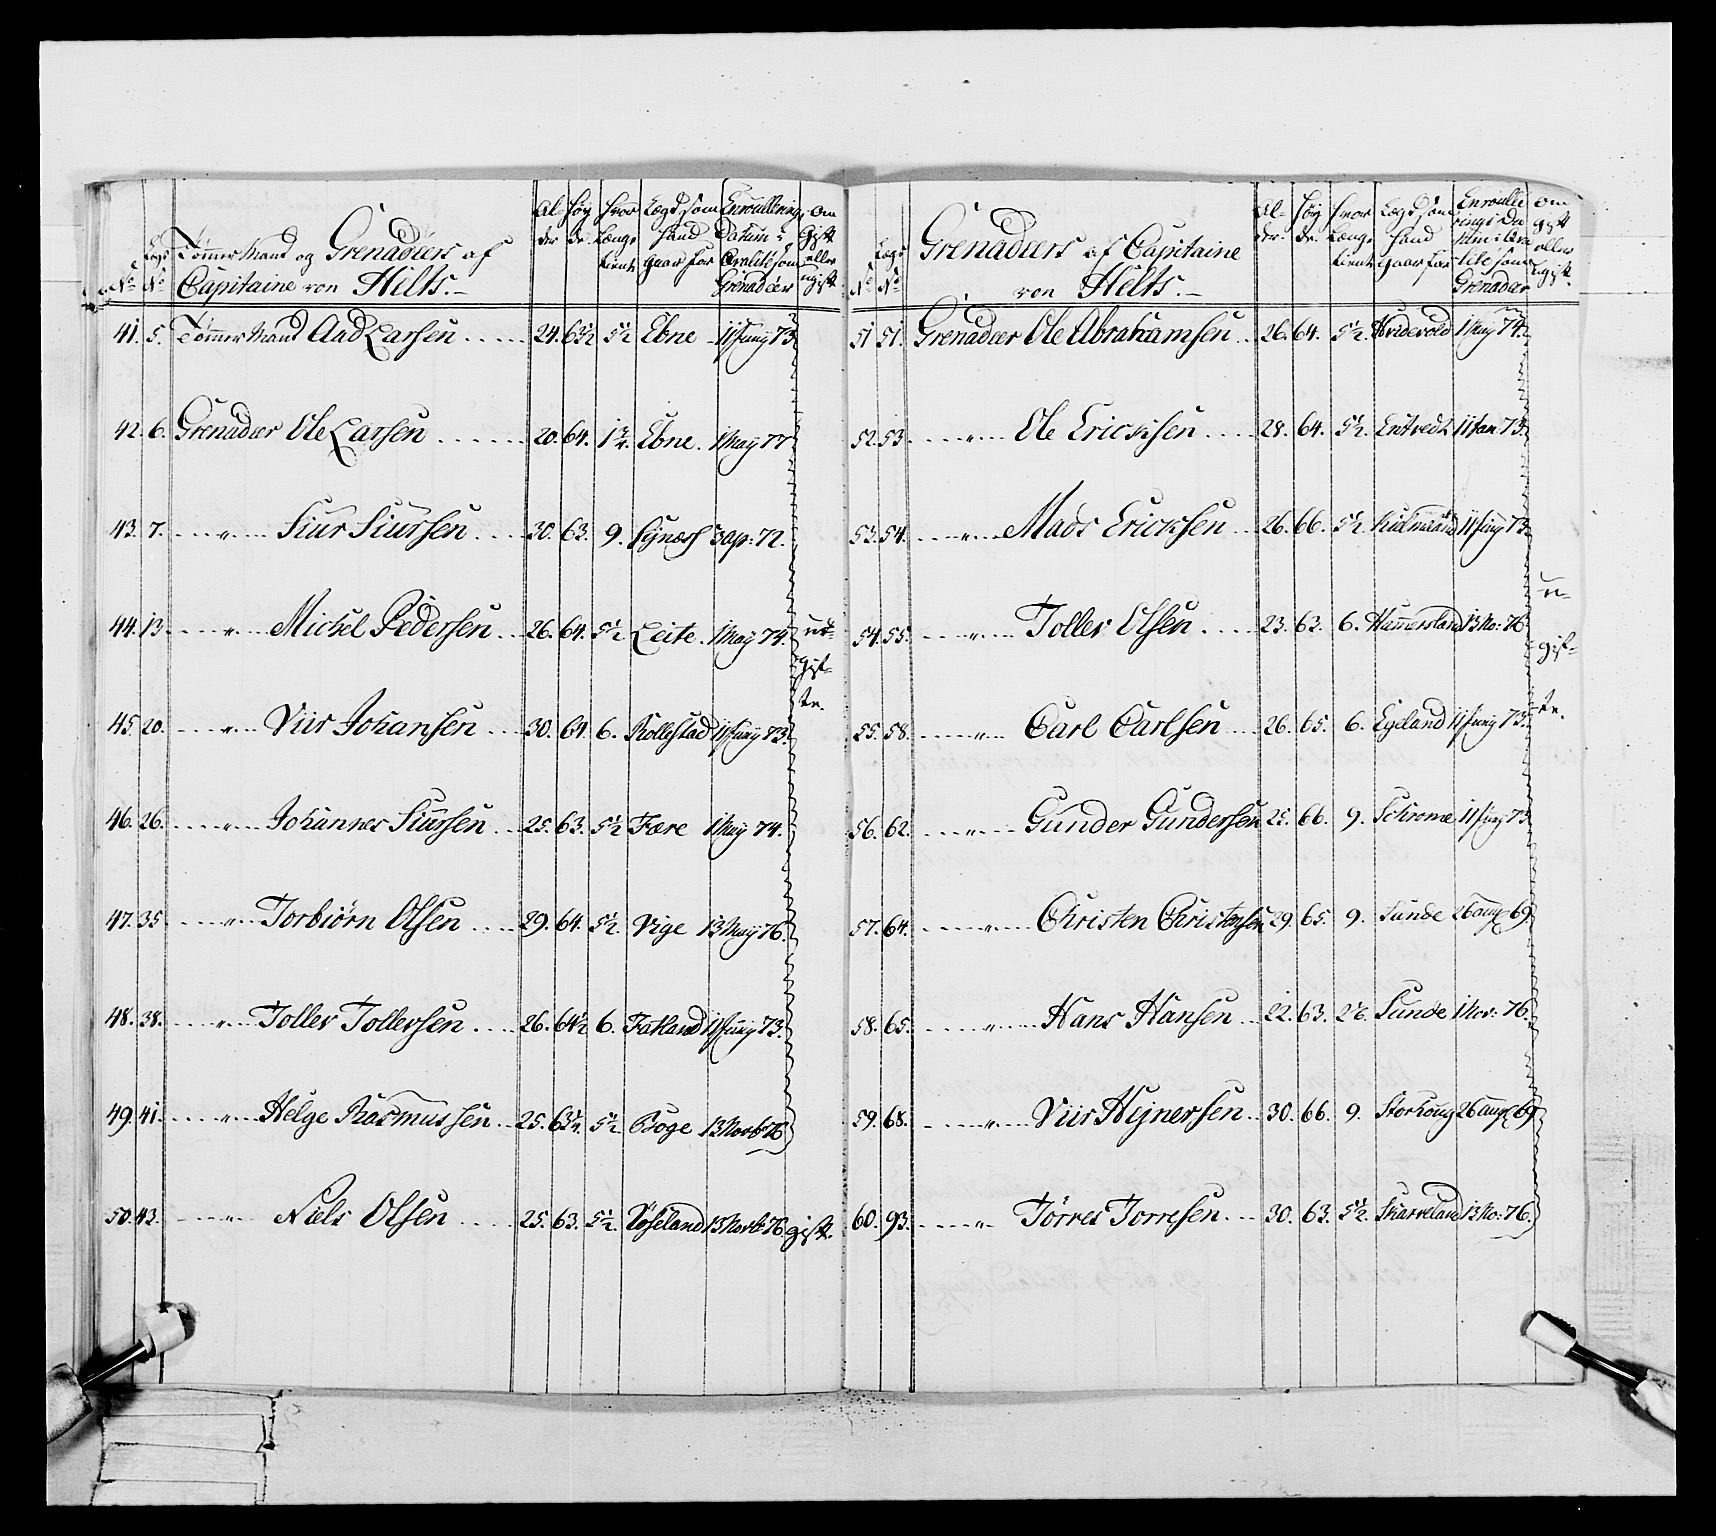 No Lægs No Tømmermand og Grenadeers af Capitaine von Helts.– Alder Høyde Hvor Længe tient Lægd som hand gaar for Enroullerings Datum i Qvalité som Grenadeer Om Gift eller ugift
41. 5. Tømmermand Aad Larsen 24. 63½ 5½ Ebne 11 Juny 73.
42. 6. Grenadeer Ole Larsen 20. 64. 1¾. Ebne. 1 May 77.
43. 7. " Siur Siursen 30. 63. 9. 3 ap: 72.
44. 13. " Michel Pedersen 26. 64. 5½ Leite. 1 May 74.
45. 20. " Viir Johansen 30. 64. 6. Rollestad 11 Juny 73.
46. 26. " Johannes Siursen 25. 63. 5½ Fære 1 May 74.
47. 35. " Torbiørn Olsen 29. 64. 5½. Vige 13 May 76.
48. 38. " Toller Tollersen 26. 64½ 6. Fatland 11 Juny 73.
49. 41. " Helge Rasmussen 25. 63½. 5½. Boge 13 Novb: 76
ugifte.
50. 43. " Niels Olsen 25. 63. 5½. 13 Novb: 76. gift.
No Lægs No Grenadeers af Capitaine von Helts.– Alder. Høyde. Hvor Længe tient Lægd som hand gaar for Enroullerings Datum i Qvalité som Grenadeer Om gift eller Ugift.
51 51. Grenadeer Ole Abrahamsen 26. 64. 5½. Hvidevold 1 May 74.
52. 53. " Ole Ericksen 28. 64. 5½. 11 Jan 73.
53. 54. " Mads Ericksen 26. 66. 5½ 11 Juny 73.
54. 55. " Toller Olsen 23. 63. 6. Hammersland 13 No: 76
55. 58. " Carl Carlsen 26. 65. 6. Egeland 11 Juny 73.
56. 62. " Gunder Gundersen 25. 66. 9. 11 Juny 73.
57. 64. " Christen Christensen 29. 65. 9. Sunde 26 aug 69.
58. 65. " Hans Hansen 22. 63. Sunde 1 Nov: 76.
59. 68. " Viir Hynersen 30. 66. 9. Storhoug 26 aug 69.
60. 93. " Tørres Torresen 30. 63. 5½. Skarveland 13 No: 76.
ugifte.